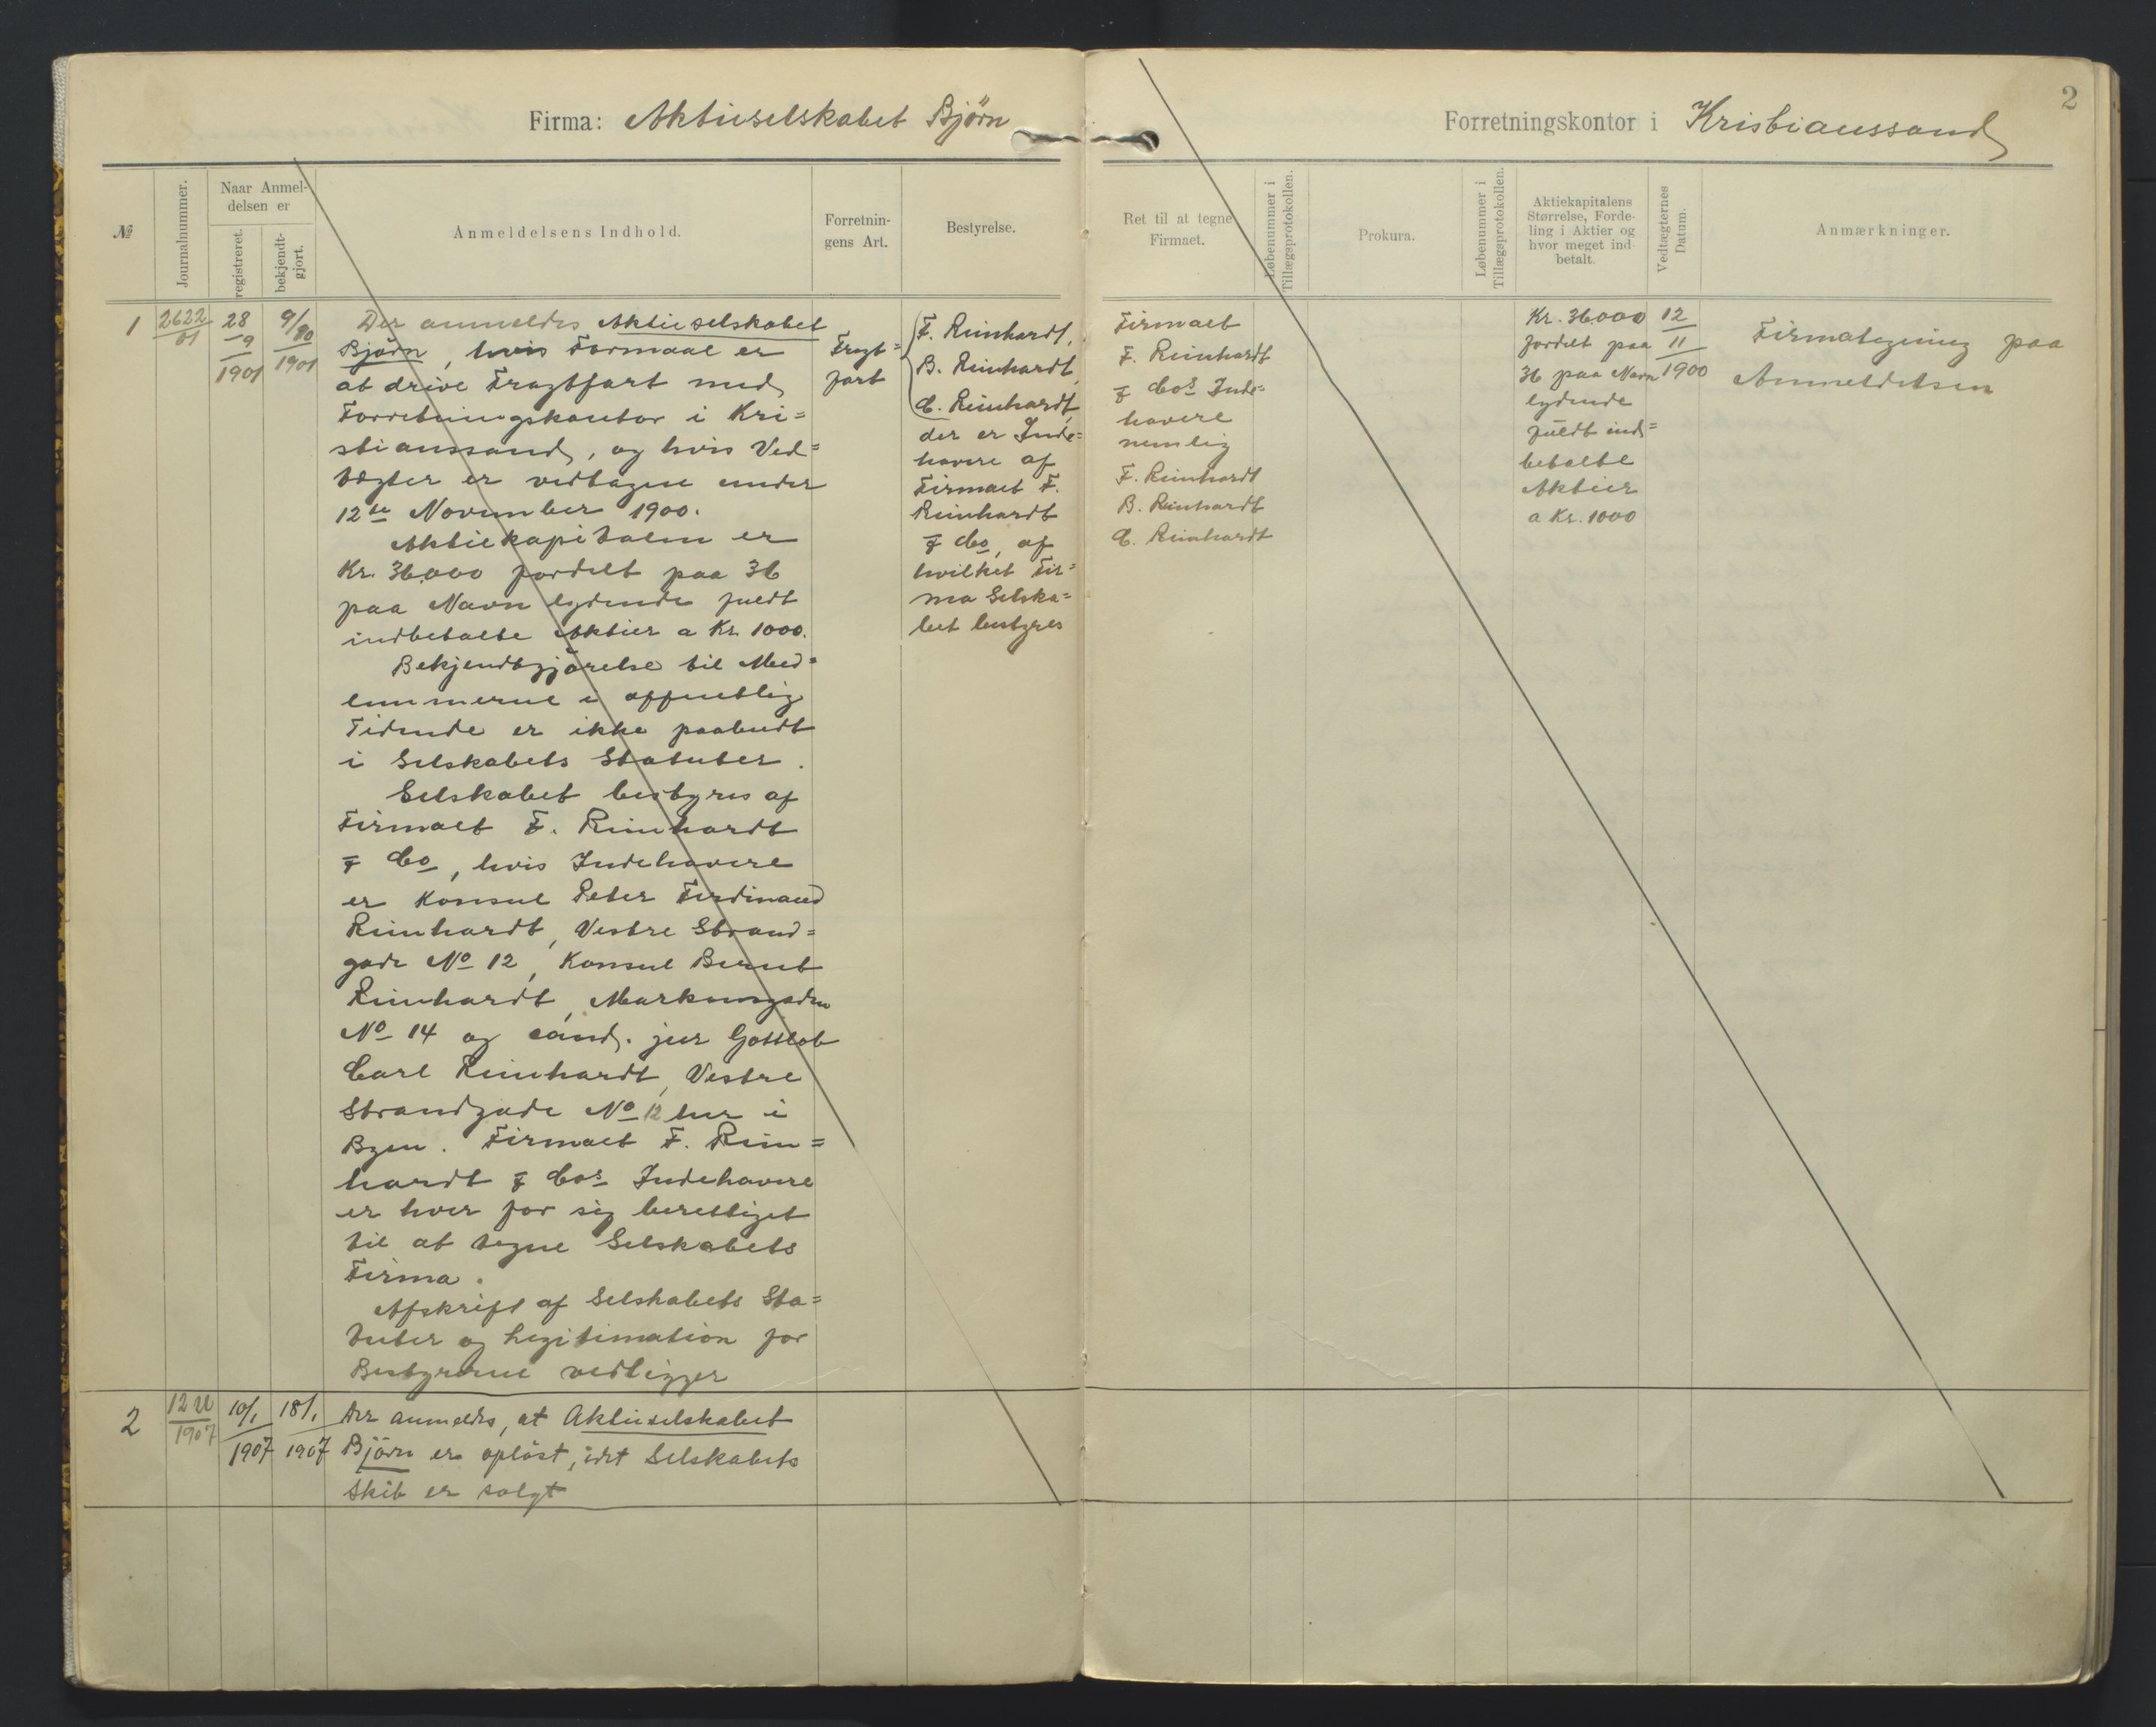 2
Firma: Aktieselskabet Björn
Forretningskontor i Kristianssand
№
Journalnummer.
Naar Anmel-
delsen er
registreret.
bekjendt-
gjort.
Anmeldelsens Indhold.
Forretnin-
gens Art.
Bestyrelse.
Ret til at tegne
Firmaet.
Løbenummer i
Tillægsprotokollen.
Prokura.
Løbenummer i
Tillægsprotokollen.
Aktiekapitalens
Størrelse, Forde-
ling i Aktier og
hvor meget ind-
betalt.
Vedtægternes
Datum.
Anmærkninger.
1
2622
01
28
9
1901
9/10
1901
Der anmeldes Aktieselskabet
Björn, hvis Formaal er
at drive Fragtfart med
Forretningskontor i Kri=
stianssand, og hvis Ved=
tægter er vedtagne under
12te November 1900.
Aktiekapitalen er
Kr. 36.000 fordelt paa 36
paa Navn lydende fuldt
indbetalte Aktier a Kr. 1000.
Bekjendtgjörelse til Med=
lemmerne i offentlig
Tidende er ikke paabudt
i Selskabets Statuter.
Selskabet bestyres af
Firmaet F. Reinhardt
& Co, hvis Indehavere
er Konsul Peter Ferdinand
Reinhardt, Vestre Strand=
gade No 12, Konsul Bernt
Reinhardt, Markensgaden
No 14 og cand. jur Gottlob
Carl Reinhardt, Vestre
Strandgade No 12 her i
Byen. Firmaet F. Rein=
hardt & Cos Indehavere
er hver for sig berettiget
til at tegne Selskabets
Firma.
Afskrift af Selskabets Sta=
tuter og Legitimation for
Bestyrerne vedligger
Fragt=
fart
F. Reinhardt,
B. Reinhardt,
C. Reinhardt,
der er Inde=
havere af
Firmaet F.
Reinhardt
& Co, af
hvilket Fir=
ma Selska=
bet bestyres
Firmaet
F. Reinhardt
& Cos Inde=
havere
nemlig
F. Reinhardt
B. Reinhardt
C. Reinhardt
Kr. 36000
fordelt paa
36 paa Navn
lydende
fuldt ind=
betalte
Aktier
a Kr. 1000
12
11
1900
Firmategning paa
Anmeldelsen
2
1907
10/1
1907
18/1
1907
Der anmeldes, at Aktieselskabet
Björn er oplöst, idet Selskabets
Skib er solgt